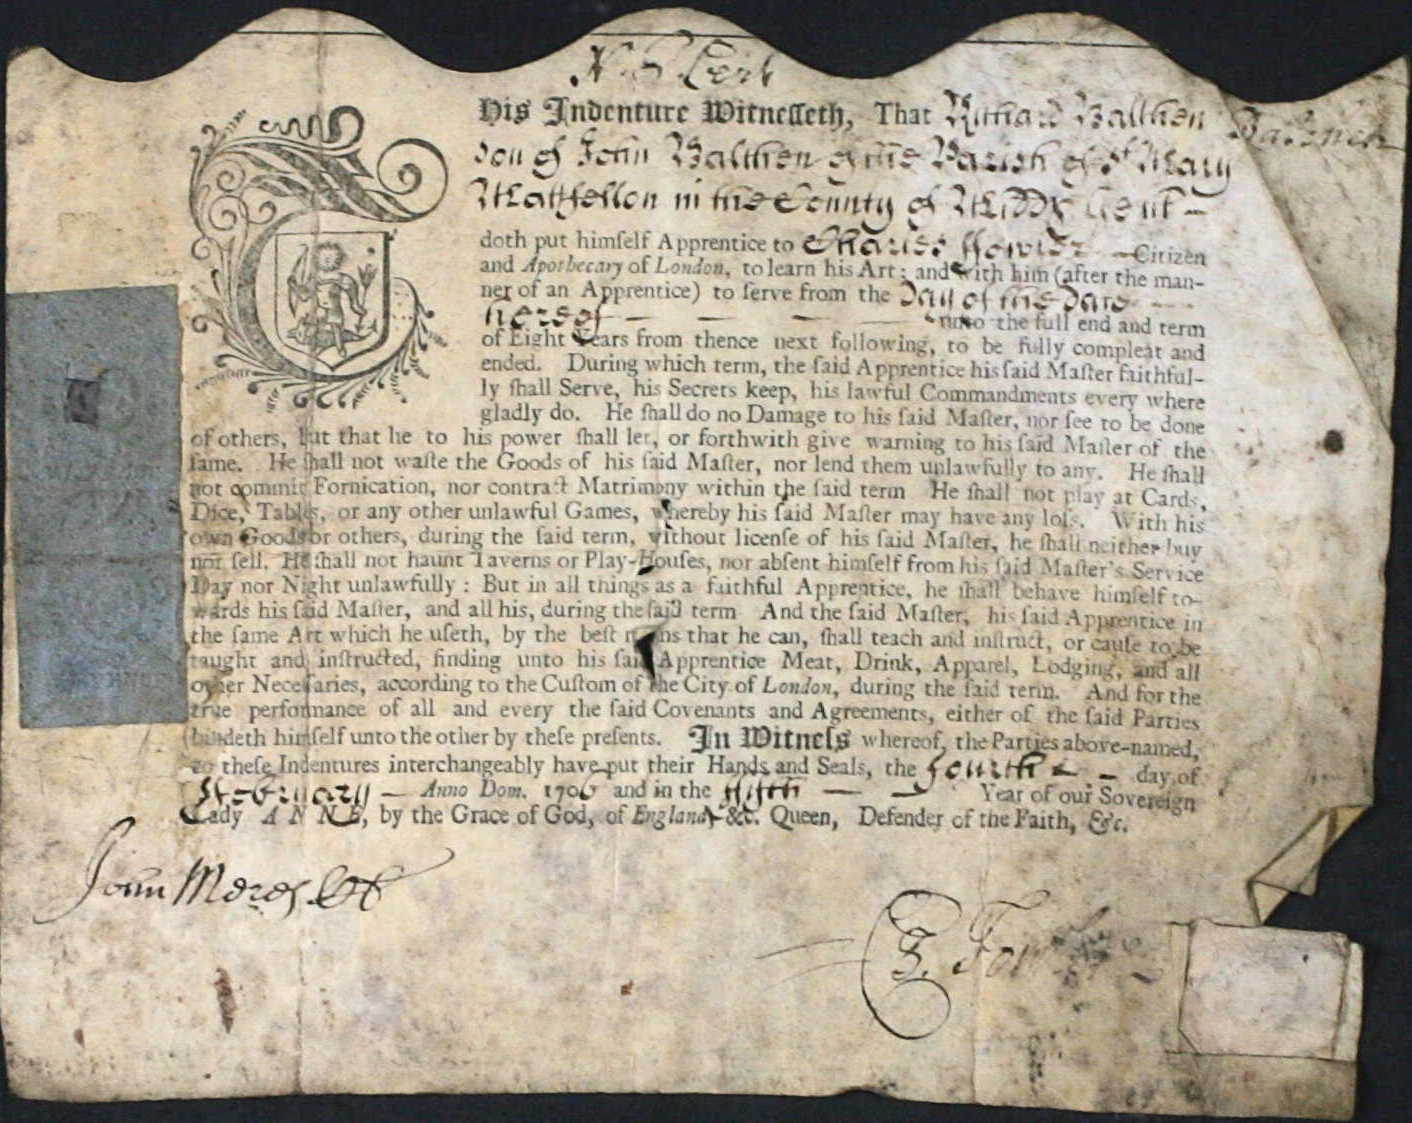 This Indenture Witnesseth, That Richard Balthen
son of John Balthen of the Parish of St Mary
Mattfellon in the County of Middx Gent
doth put himself Apprentice to Charles Fowler Citizen
and Apothecary of London, to learn his Art; and with him (after the man-
ner of an Apprentice) to serve from the Day of the Date
hereof unto the full end and term
of Eight Years from thence next following, to be fully compleat and
ended. During which term, the said Apprentice his said Master faithful-
ly shall Serve, his Secrets keep, his lawful Commandments every where
gladly do. He shall do no Damage to his said Master, nor see to be done
of others, but that he to his power shall let, or forthwith give warning to his said Master of the
same. He shall not waste the Goods of his said Master, nor lend them unlawfully to any. He shall
not commit Fornication, nor contract Matrimony within the said term He shall not play at Cards,
Dice, Tables, or any other unlawful Games, whereby his said Master may have any loss. With his
own Goods or others, during the said term, without license of his said Master, he shall neither buy
nor sell. He shall not haunt Taverns or Play-Houses, nor absent himself from his said Master's Service
Day nor Night unlawfully: But in all things as a faithful Apprentice, he shall behave himself to-
wards his said Master, and all his, during the said term And the said Master, his said Apprentice in
the same Art which he useth, by the best means that he can, shall teach and instruct, or cause to be
taught and instructed, finding unto his said Apprentice Meat, Drink, Apparel, Lodging, and all
other Necessaries, according to the Custom of the City of London, during the said term. And for the
true performance of all and every the said Covenants and Agreements, either of the said Parties
bindeth himself unto the other by these presents. In Witness whereof, the Parties above-named,
to these Indentures interchangeably have put their Hands and Seals, the fourth day of
February Anno Dom. 1706 and in the fifth Year of our Sovereign
Lady ANNE, by the Grace of God, of England, &c. Queen, Defender of the Faith, &c.
John Meres
Fow